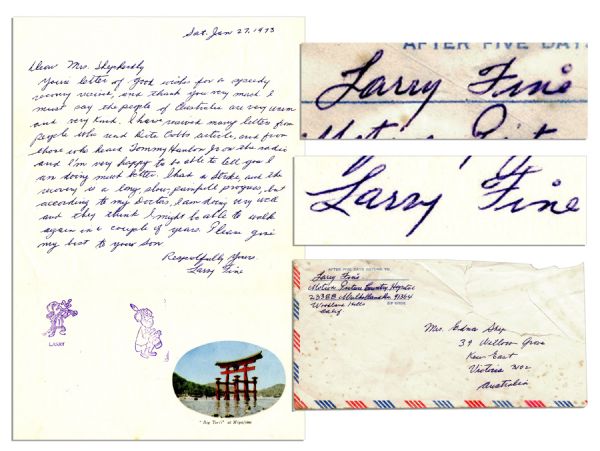 Sat. Jan 27, 1973
Dear Mrs. Shepherdly
Your letter of good wishes for a speedy
recovery received, and thank you very much I
must say the people of Australia are very warm
and very kind. I have received many letters from
people who read article, and from
those who heard Tommy Hanlon Jr on the radio
and I'm very happy to be able to tell you I
am doing much better. I had a stroke, and the
recovery is a long, slow, progress, but
according to my Doctors, I am doing very well
and they think I might be able to walk
again in a couple of years Please give
my best to your Son
Respectfully Yours
Larry Fine
LARRY
"Big Torii" at Miyajima
AFTER FIVE DAYS
Larry Fine
Motion Pict
Larry Fine
AFTER FIVE DAYS RETURN TO
Larry Fine
Motion Picture Country Hospital
23388 Mulholland Dr 91364
Woodland Hills
Calif
Mrs. Edna Shep
39 Willow Grove
Kew East
Victoria 3102
Australia